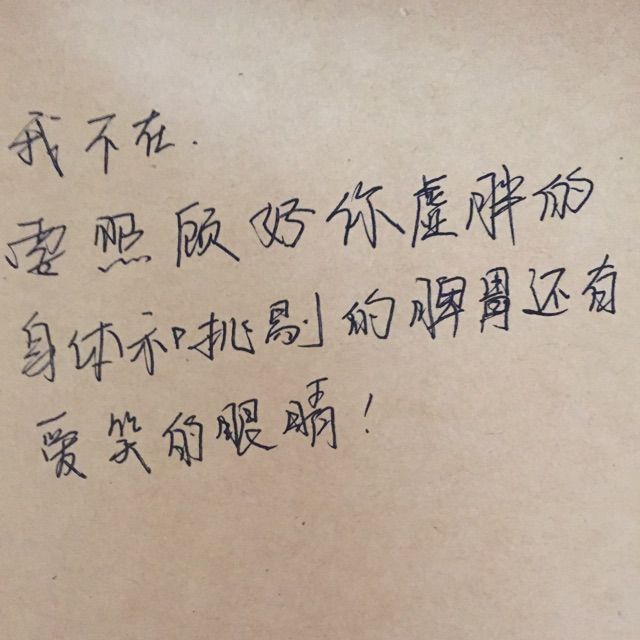 我不在.
要照顾好你虚胖的
身体和挑剔的脾胃还有
爱笑的眼睛!